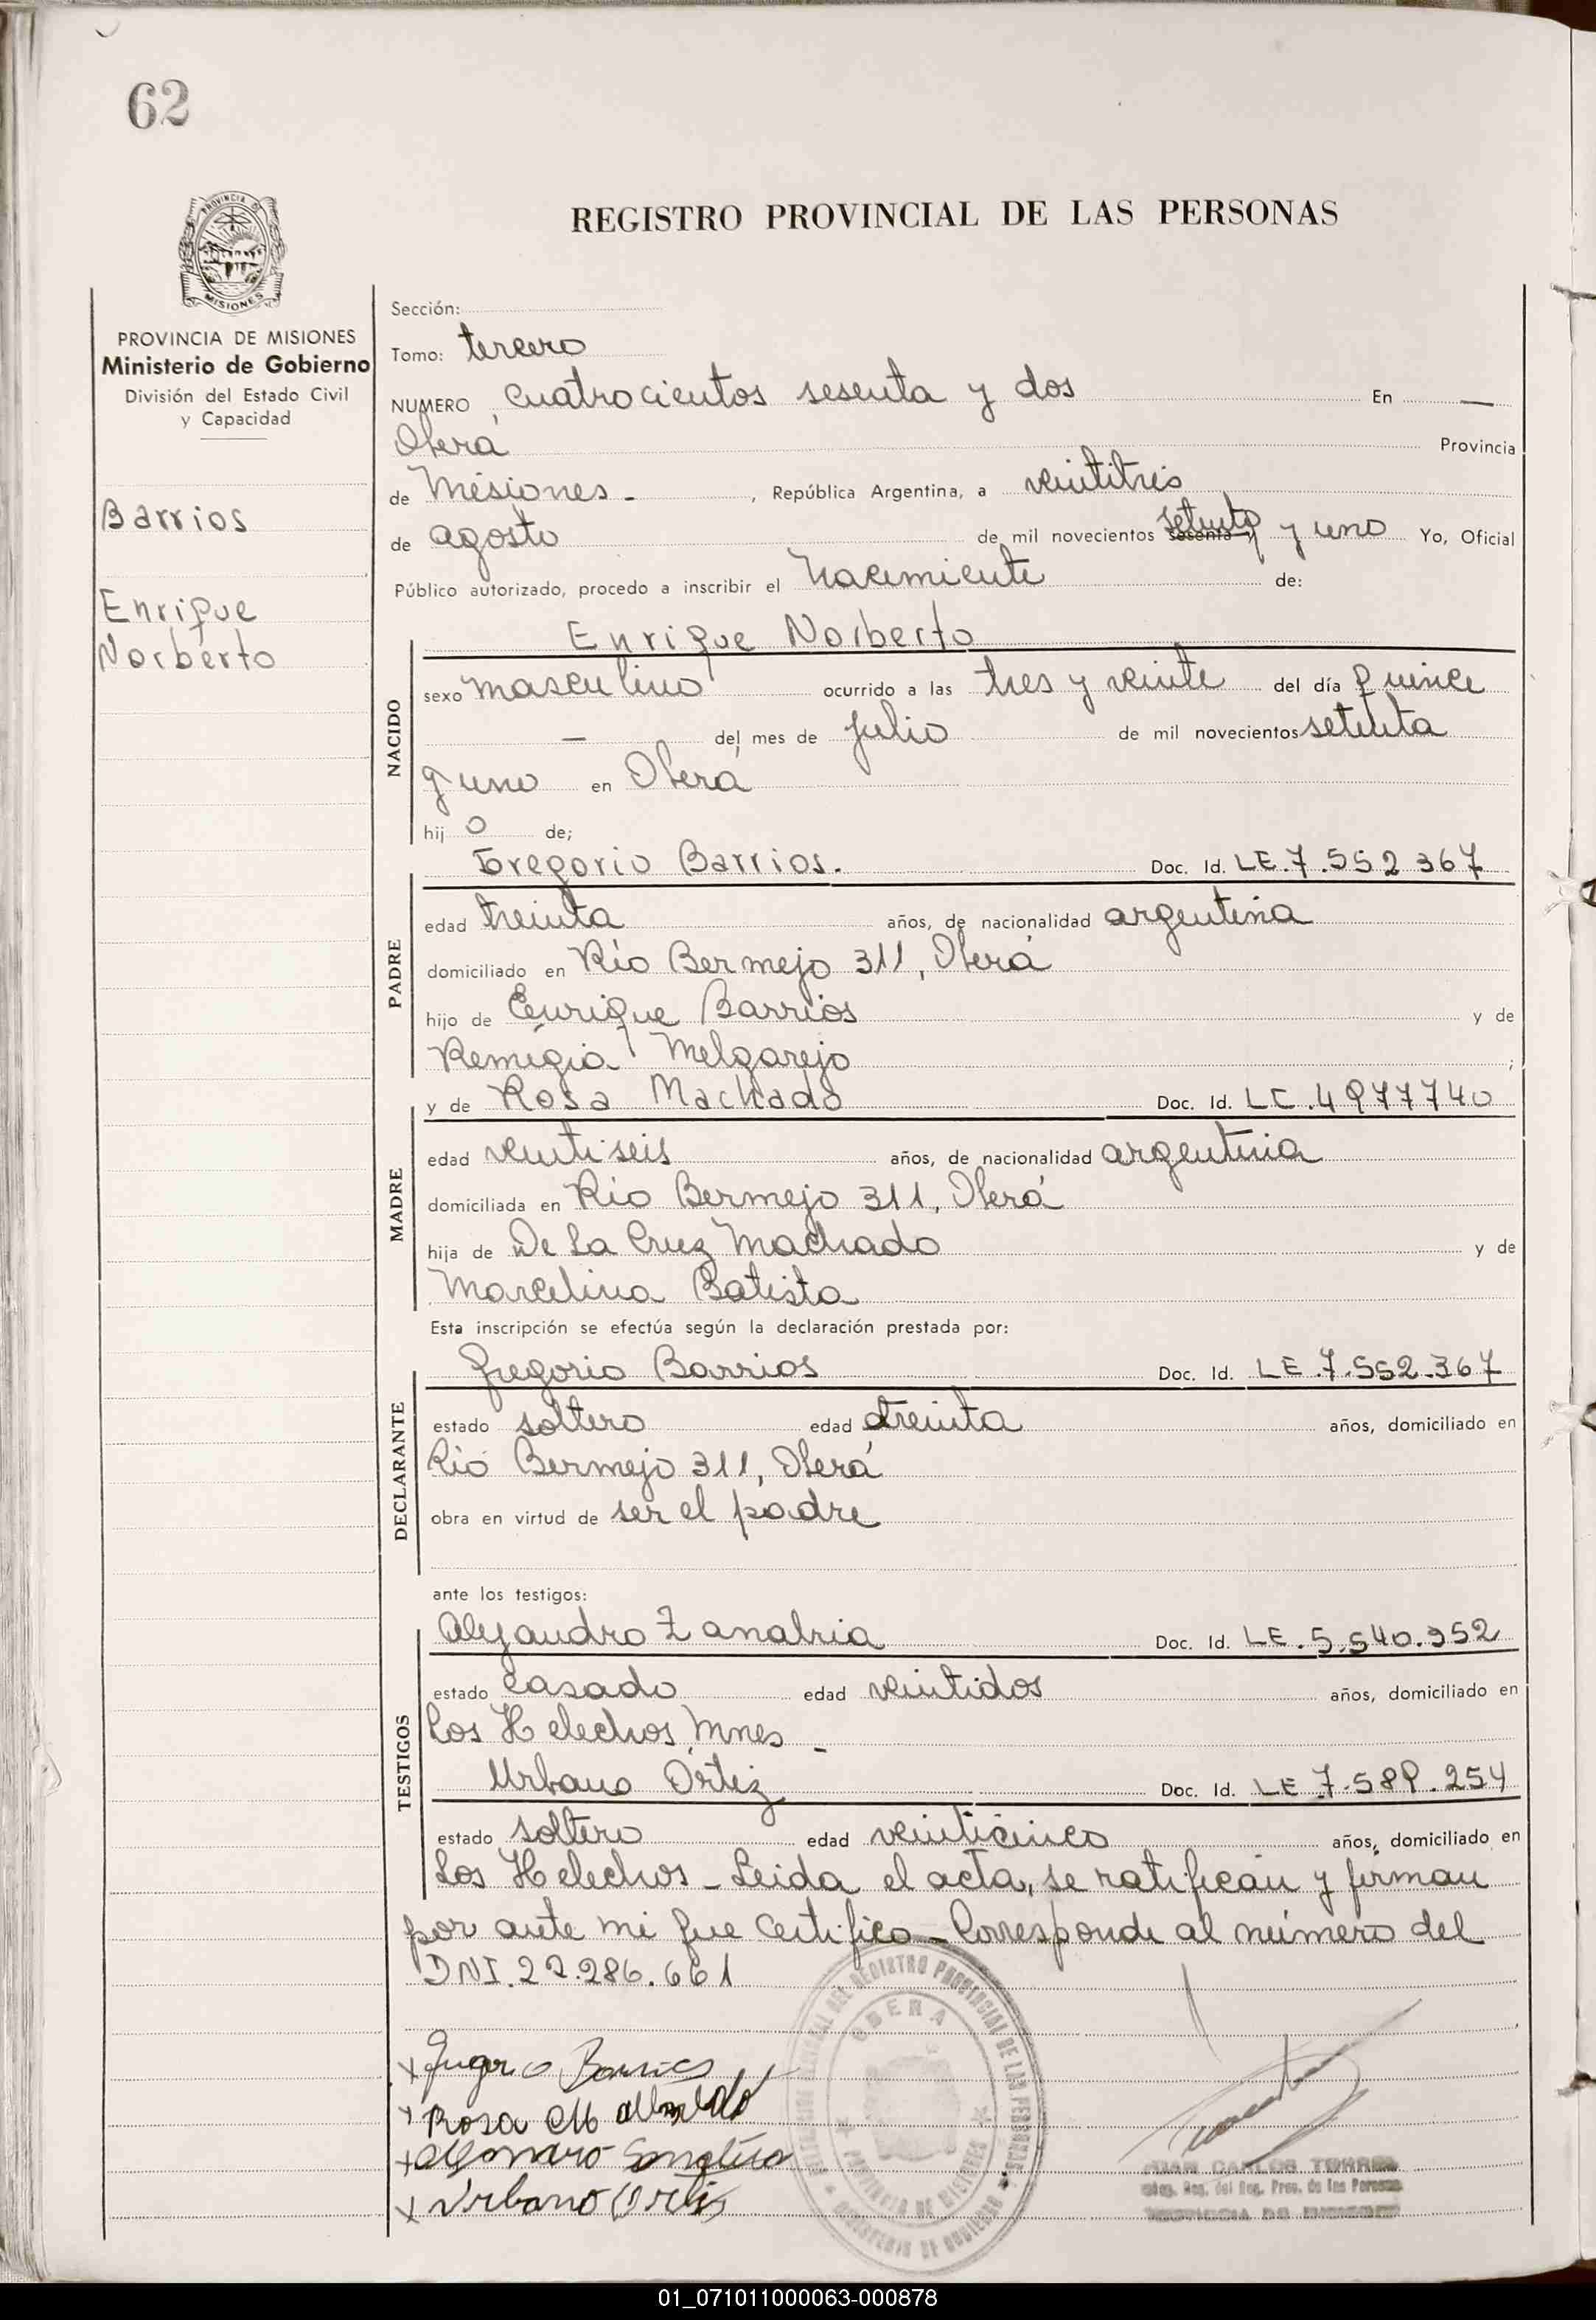 62
PROVINCIA DE
MISIONES
REGISTRO PROVINCIAL DE LAS PERSONAS
PROVINCIA DE MISIONES
Ministerio de Gobierno
División del Estado Civil
y Capacidad
Barrios
Enrique
Norberto
Sección:
Tomo: tercero
NUMERO cuatrocientos sesenta y dos En —
Oberá Provincia
de Misiones - , República Argentina, a veintitrés
de agosto de mil novecientos setenta y uno Yo, Oficial
Público autorizado, procedo a inscribir el Nacimiento de:
NACIDO
Enrique Norberto
sexo masculino ocurrido a las tres y veinte del día quince
— del mes de julio de mil novecientos setenta
y uno en Oberá
hij o de;
PADRE
Gregorio Barrios. Doc. Id. LE.7.552 367
edad treinta años, de nacionalidad argentina
domiciliado en Río Bermejo 311, Oberá
hijo de Enrique Barrios y de
Remigia Melgarejo ;
MADRE
y de Rosa Machado Doc. Id. LC.4977740
edad veintiseis años, de nacionalidad argentina
domiciliada en Río Bermejo 311, Oberá
hija de De La Cruz Machado y de
Marcelina Batista
Esta inscripción se efectúa según la declaración prestada por:
DECLARANTE
Gregorio Barrios Doc. Id. LE.7.552.367
estado soltero edad treinta años, domiciliado en
Río Bermejo 311, Oberá
obra en virtud de ser el padre
ante los testigos:
TESTIGOS
Alejandro Zanabria Doc. Id. LE.5.540.952
estado casado edad veintidos años, domiciliado en
Los Helechos, Mnes -
Urbano Ortiz Doc. Id. LE 7.589.254
estado soltero edad veinticinco años, domiciliado en
Los Helechos - Leida el acta, se ratifican y firman
por ante mi que certifico - Corresponde al número del
DNI.22.286.661
x Gregorio Barrios
x Rosa Machado
x
x Urbano Ortiz
OBERA
PROVINCIA DE MISIONES
MINISTERIO DE GOBIERNO
JUAN CARLOS TORRES
Reg. Prov. de las Personas
01_071011000063-000878